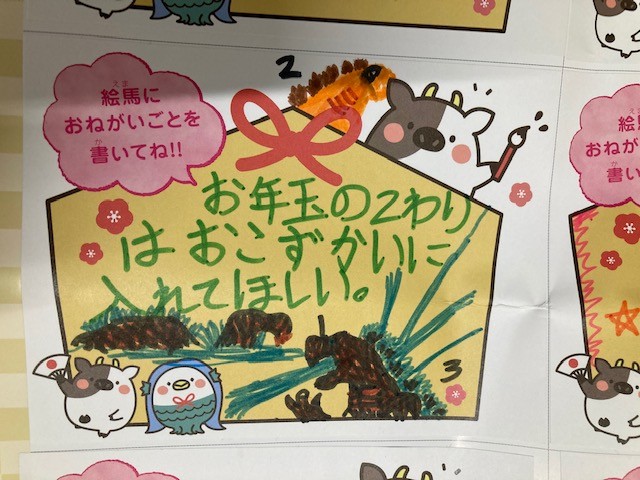 絵馬に
おねがいごとを
書いてね!!
2
お年玉の2わり
はおこずかいに
入れてほしい。
3
絵
おねが
書い